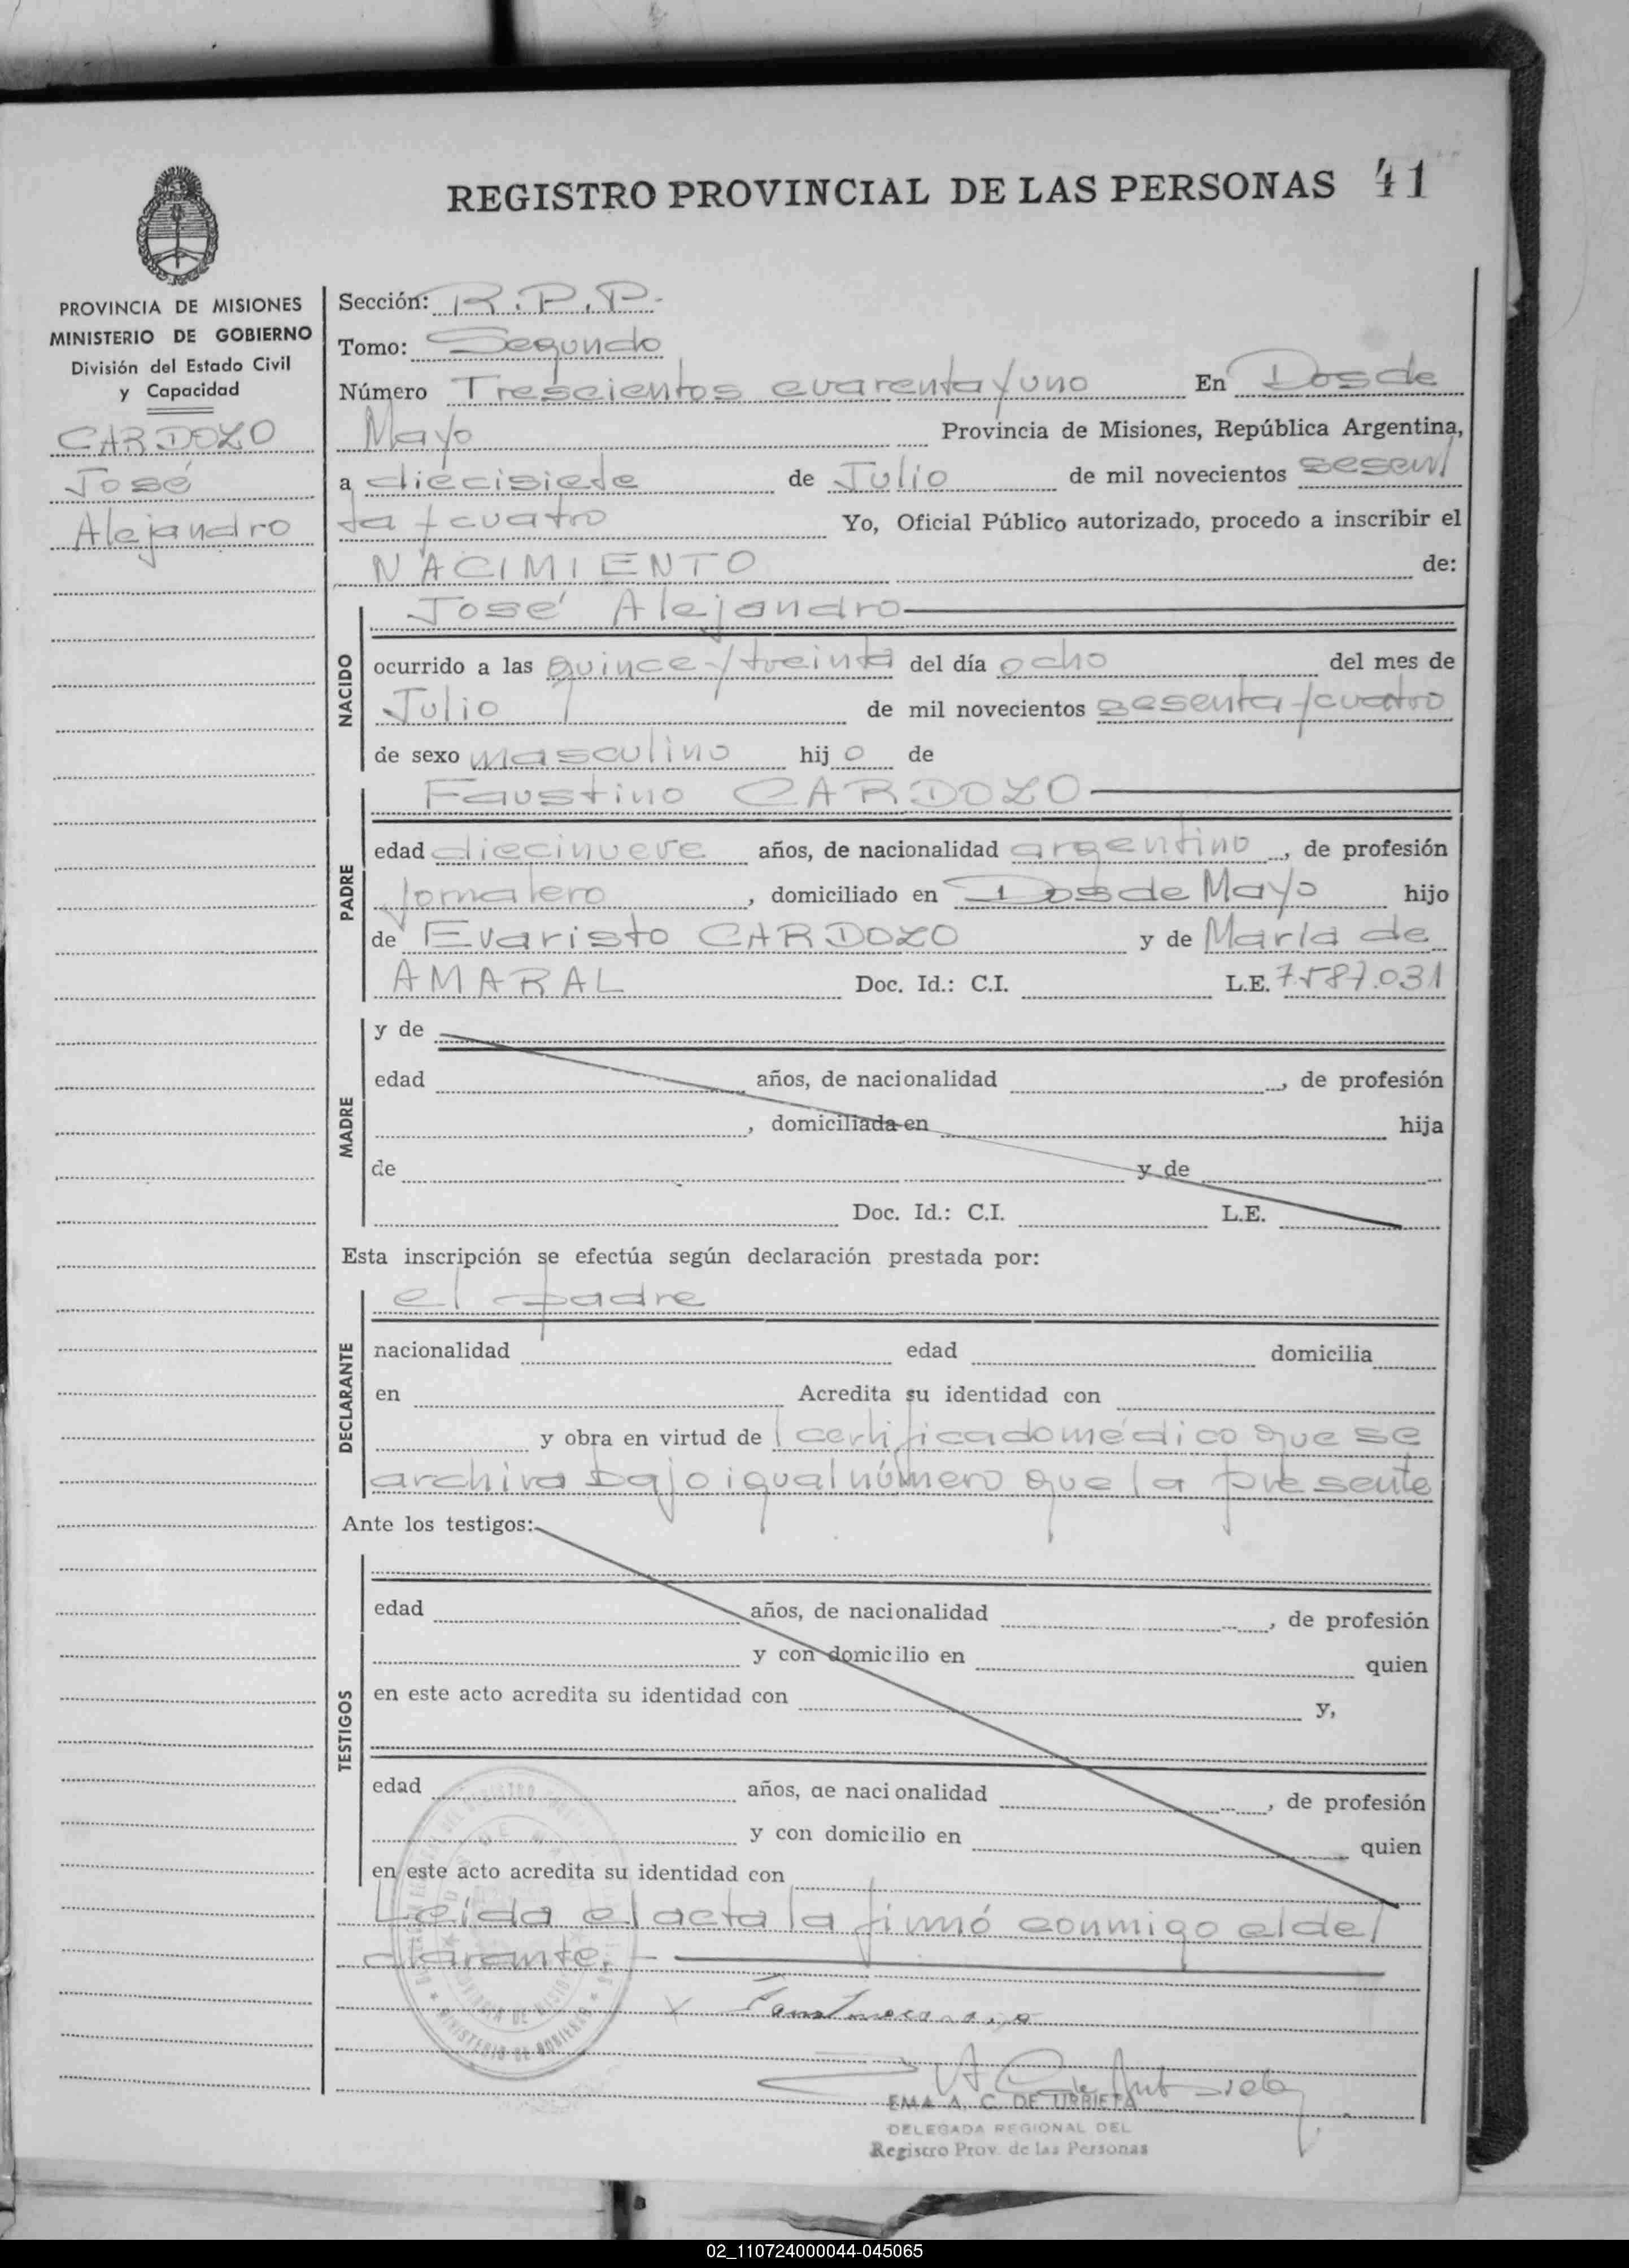 REGISTRO PROVINCIAL DE LAS PERSONAS 41
PROVINCIA DE MISIONES
MINISTERIO DE GOBIERNO
División del Estado Civil
y Capacidad
CARDOZO
José
Alejandro
Sección: R.P.P.
Tomo: Segundo
Número Trescientos cuarenta y uno En Dos de
Mayo Provincia de Misiones, República Argentina,
a diecisiete de Julio de mil novecientos sesen
ta y cuatro Yo, Oficial Público autorizado, procedo a inscribir el
NACIMIENTO de:
NACIDO
José Alejandro
ocurrido a las quince y treinta del día ocho del mes de
Julio de mil novecientos sesenta y cuatro
de sexo masculino hijo de
PADRE
Faustino CARDOZO
edad diecinueve años, de nacionalidad argentino, de profesión
Jornalero, domiciliado en Dos de Mayo hijo
de Evaristo CARDOZO y de María de
AMARAL Doc. Id.: C.I. L.E. 7.587.031
MADRE
y de
edad años, de nacionalidad , de profesión
, domiciliada en hija
de y de
Doc. Id.: C.I. L.E.
Esta inscripción se efectúa según declaración prestada por:
DECLARANTE
el padre
nacionalidad edad domicilia
en Acredita su identidad con
y obra en virtud de certificado médico que se
archiva bajo igual número que la presente
Ante los testigos:
TESTIGOS
edad años, de nacionalidad , de profesión
y con domicilio en quien
en este acto acredita su identidad con y,
edad años, de nacionalidad , de profesión
y con domicilio en quien
en este acto acredita su identidad con
Leída el acta la firmó conmigo el de
clarante.
EMA A. C. DE URRIETA
DELEGADA REGIONAL DEL
Registro Prov. de las Personas
MINISTERIO DE GOBIERNO
02_110724000044-045065